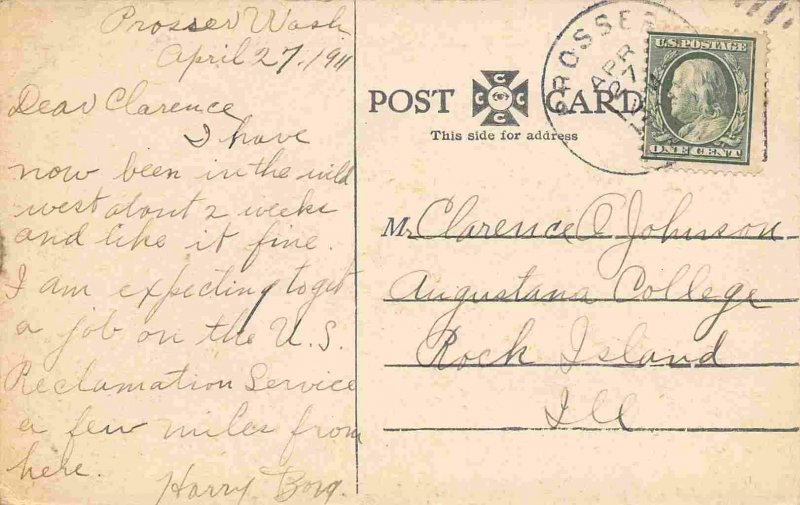 Prosser Wash
April 27, 1911
Dear Clarence
I have
now been in the wild
west about 2 weeks
and like it fine.
I am expecting to get
a job on the U.S.
Reclamation Service
a few miles from
here.
Harry Borg.
POST CARD
C C C C
This side for address
PROSSER
APR
27
U.S. POSTAGE
ONE CENT
M. Clarence O Johnson
Augustana College
Rock Island
Ill